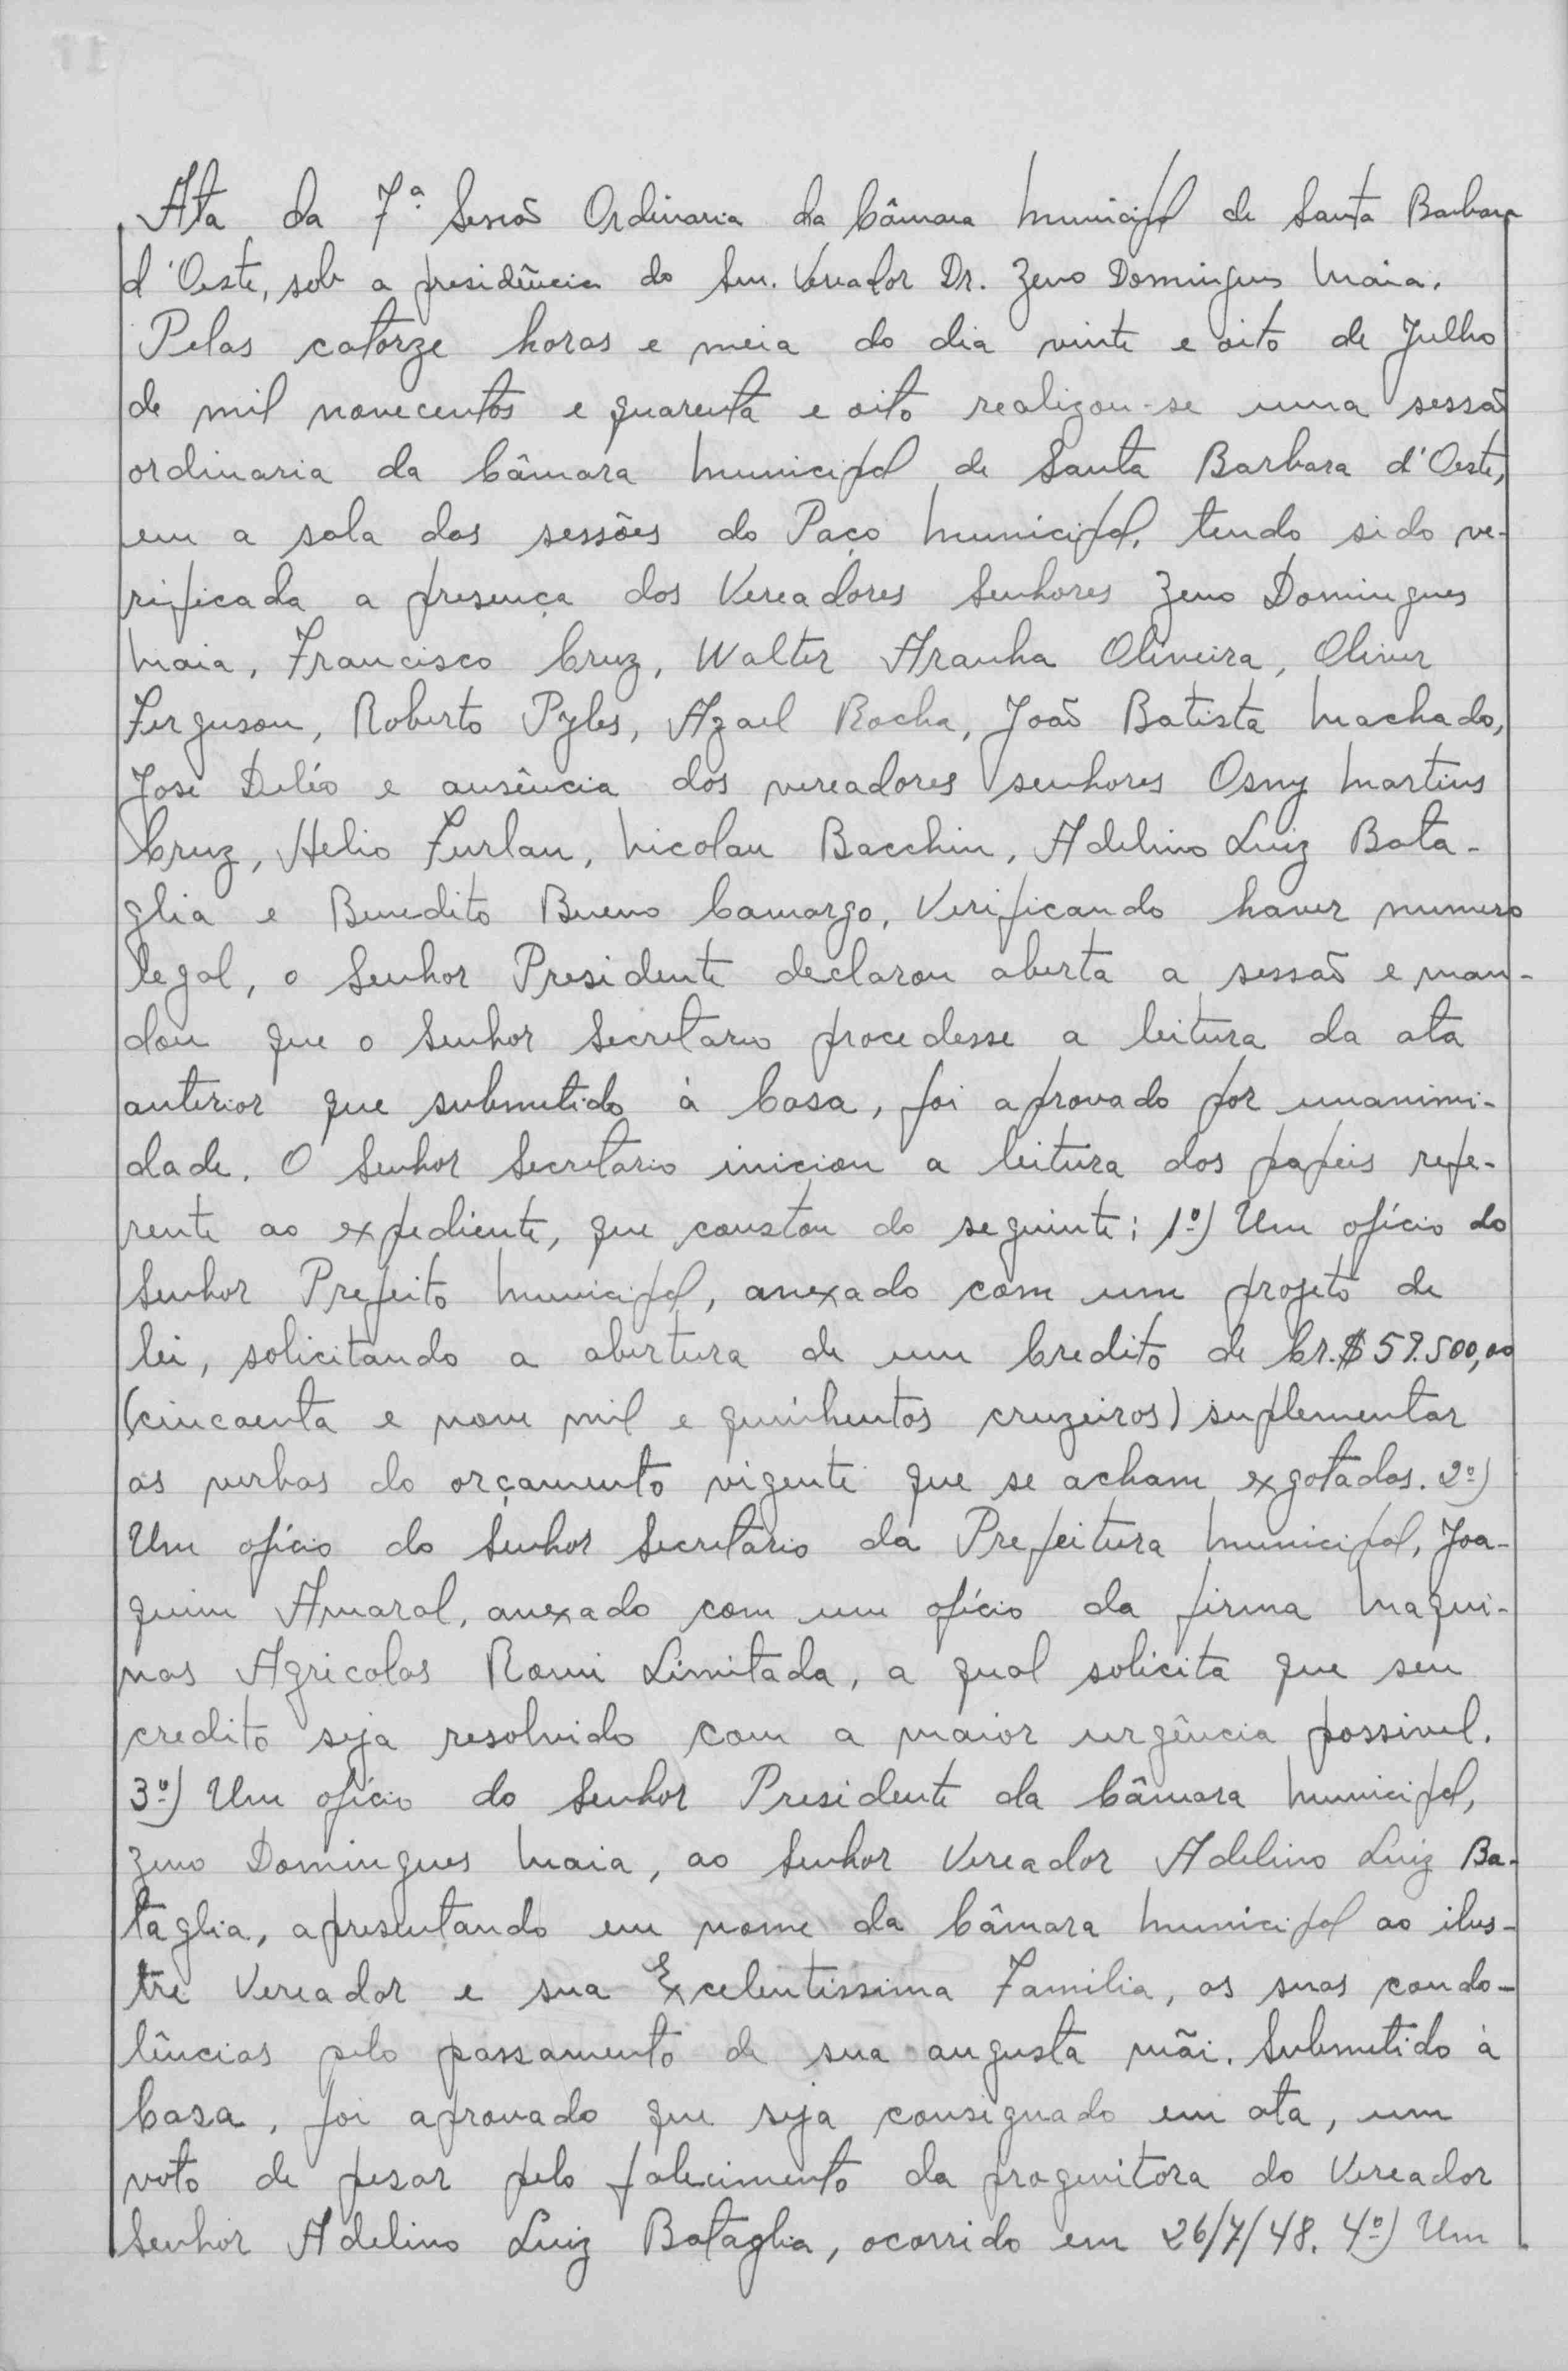 Ata da 7ª Sessão Ordinaria da Câmara Municipal de Santa Barbara
d'Oeste, sob a presidência do Snr. Vereador Dr. Zeno Domingues Maia.
Pelas catorze horas e meia do dia vinte e oito de Julho
de mil novecentos e quarenta e oito realizou-se uma sessão
ordinaria da Câmara Municipal de Santa Barbara d'Oeste,
em a sala das sessões do Paço Municipal, tendo sido ve-
rificada a presença dos Vereadores Senhores Zeno Domingues
Maia, Francisco Cruz, Walter Aranha Oliveira, Oliver
Ferguson, Roberto Pyles, Azael Rocha, João Batista Machado,
José Deléo e ausência dos vereadores senhores Osny Martins
Cruz, Helio Furlan, Nicolau Bacchin, Adelino Luiz Bata-
glia e Benedito Bueno Camargo. Verificando haver numero
legal, o Senhor Presidente declarou aberta a sessão e man-
dou que o Senhor Secretario procedesse a leitura da ata
anterior que submetido à Casa, foi aprovado por unanimi-
dade. O Senhor Secretario iniciou a leitura dos papeis refe-
rente ao expediente, que constou do seguinte: 1º) Um ofício do
Senhor Prefeito Municipal, anexado com um projeto de
lei, solicitando a abertura de um Credito de Cr.$ 59.500,00
(cincoenta e nove mil e quinhentos cruzeiros) suplementar
as verbas do orçamento vigente que se acham exgotadas. 2º)
Um ofício do Senhor Secretario da Prefeitura Municipal, Joa-
quim Amaral, anexado com um ofício da firma Maqui-
nas Agricolas Romi Limitada, a qual solicita que seu
credito seja resolvido com a maior urgência possivel.
3º) Um ofício do Senhor Presidente da Câmara Municipal,
Zeno Domingues Maia, ao Senhor Vereador Adelino Luiz Ba-
taglia, apresentando em nome da Câmara Municipal ao ilus-
tre Vereador e sua Excelentissima Familia, as suas condo-
lências pelo passamento de sua augusta mãi. Submetido à
Casa, foi aprovado que seja consignado em ata, um
voto de pesar pelo falecimento da progenitora do Vereador
Senhor Adelino Luiz Bataglia, ocorrido em 26/7/48. 4º) Um